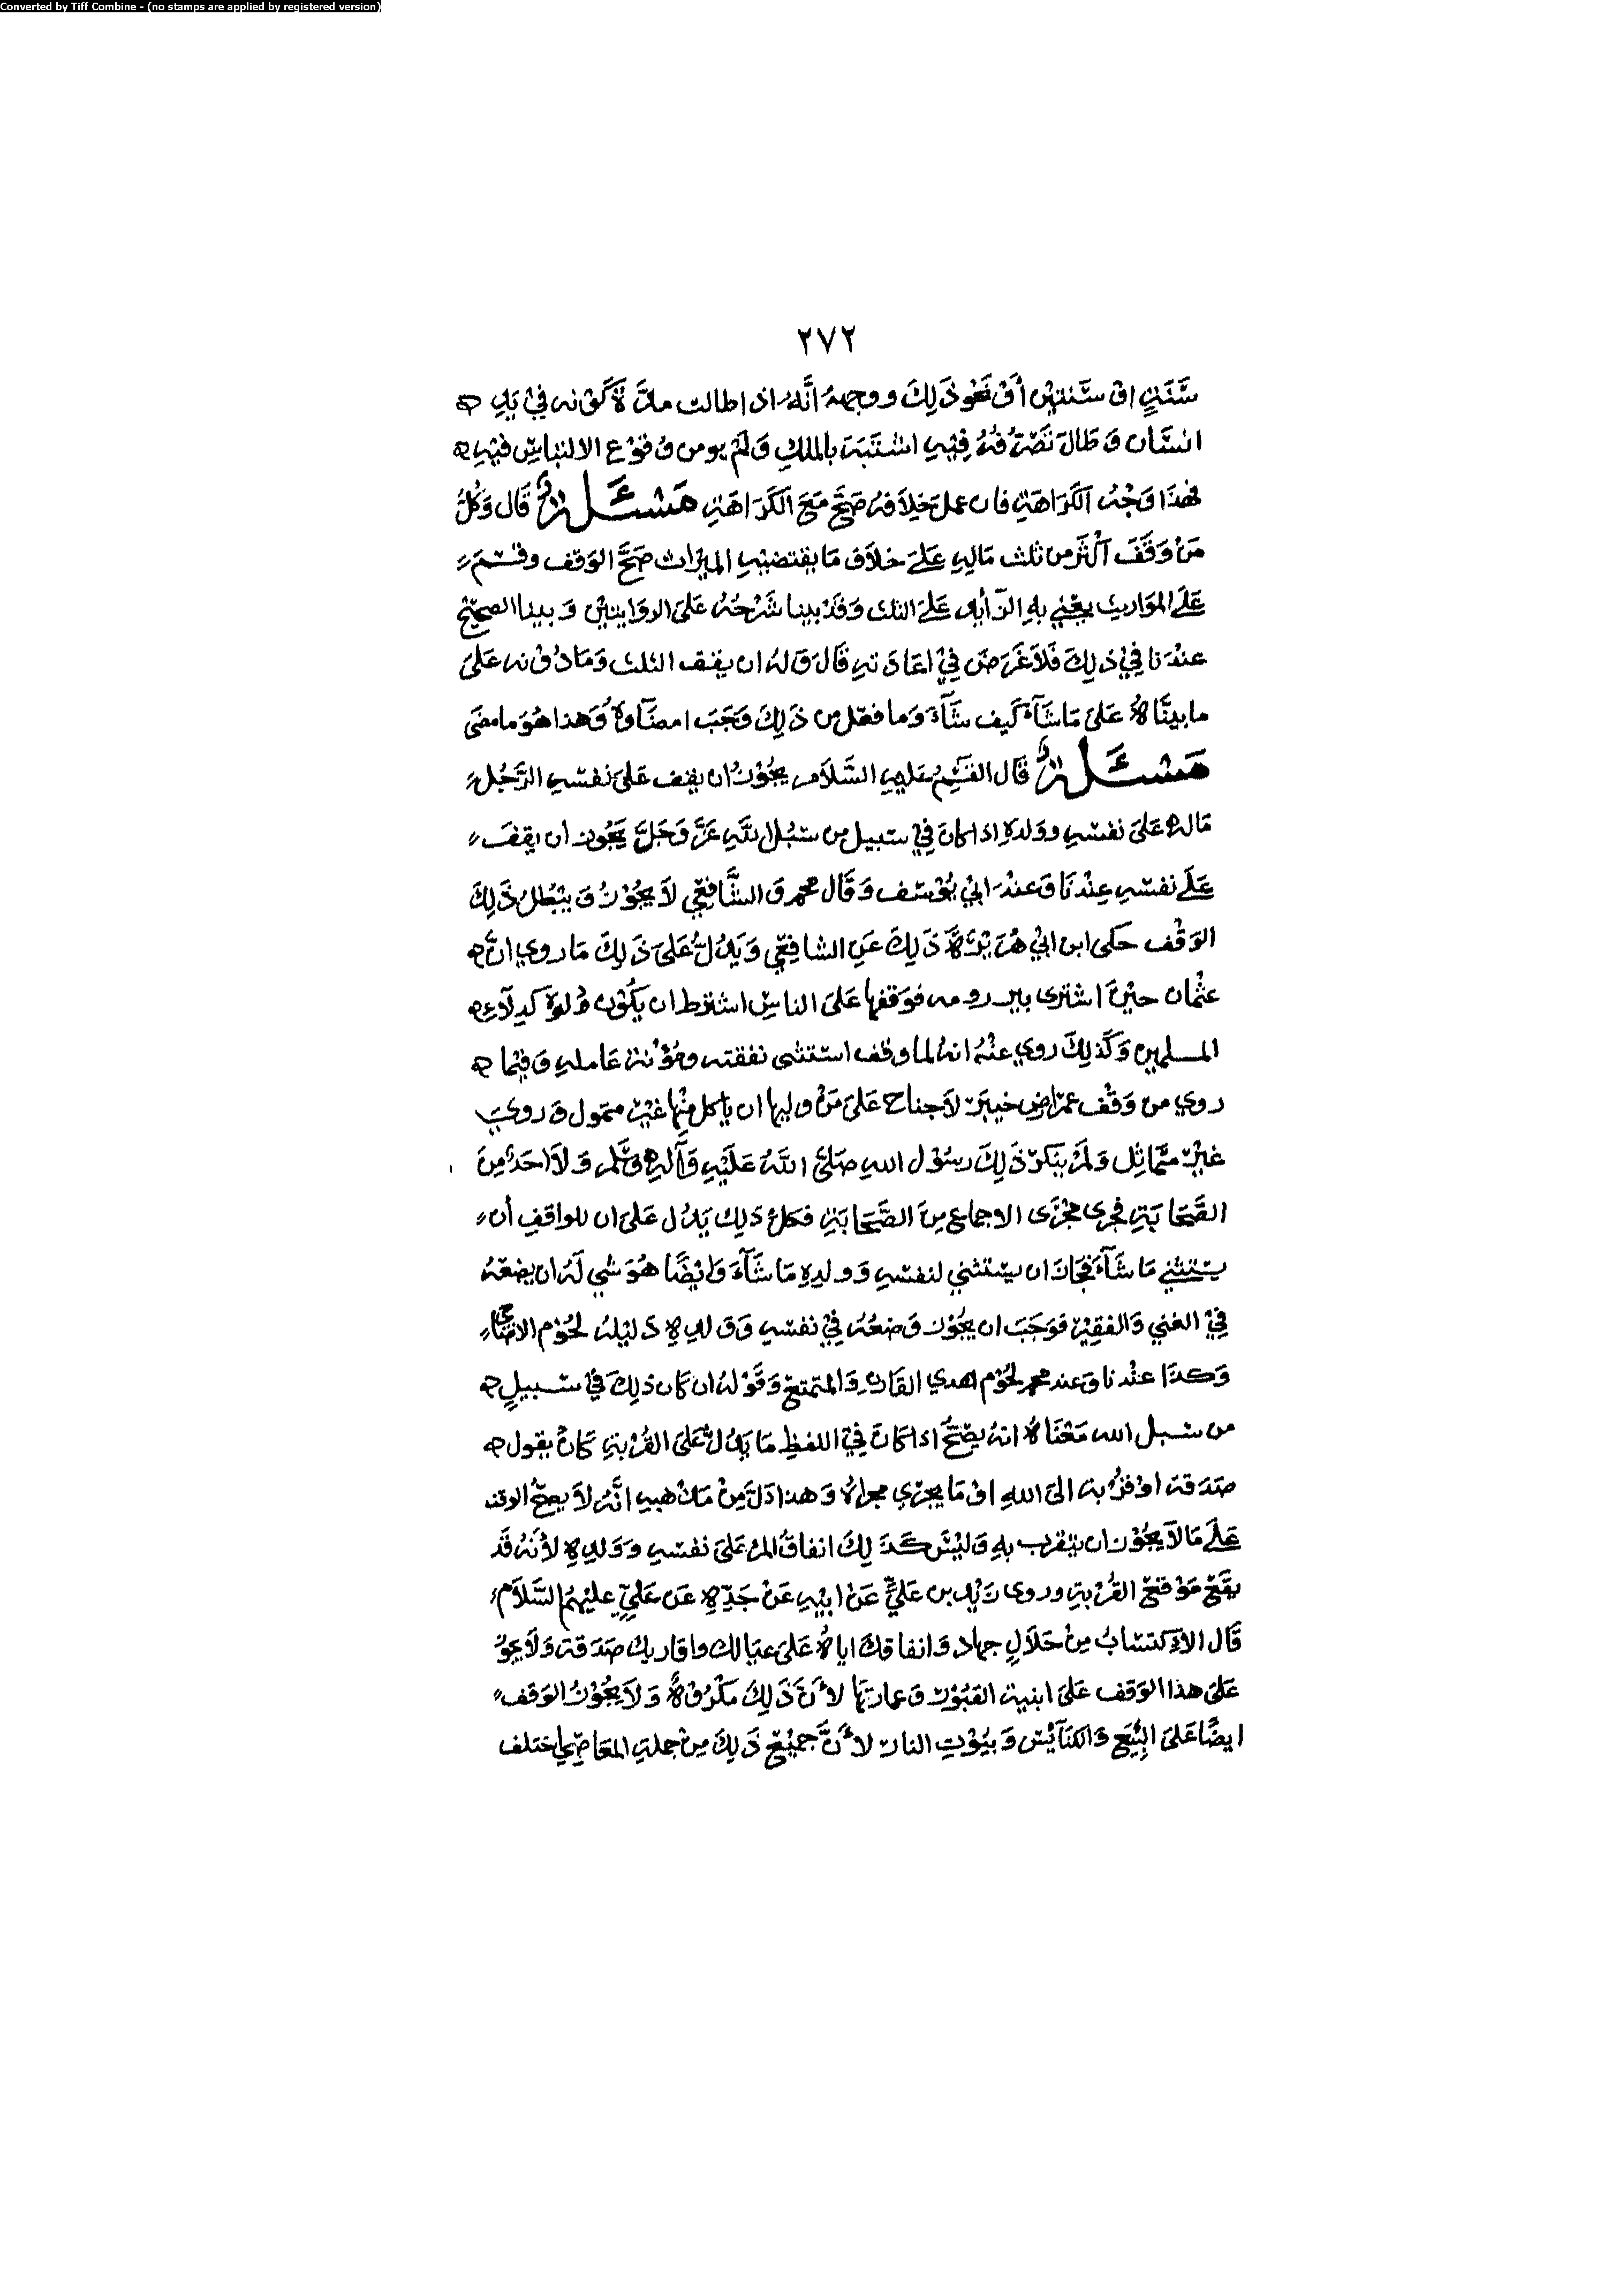 Converted by Tiff Combine - (no stamps are applied by registered version)
٢٧٢
سَنَةٍ اوْ سَنتيْن أوْ نَحْو ذَلِكَ ووجههُ أنَّهُ اذا طالت مدَّةُ كَوْنه فِيْ يَدِ
انسَان وَطَالَ تَصَرُّفُهُ فِيْهِ اشتَبَهَ بالملكِ وَلَمْ يومن وُقوْع الالتباسِ فيْهِ
فهَذَا وَجْهُ الكَرَاهَةِ فان عمل خِلاَفهُ صَحَّ مَعَ الكَرَاهَةِ مَسْئَلة قَال وَكُلُّ
مَنْ وَقَفَ أكْثَر من ثلث مَالِهِ عَلَى خلاَف مَا يقتضيْهِ الميْراث صَحَّ الوَقف وقسْمَ
عَلَى المَوَاريث يعْني بهِ الزّآئِد عَلَى الثلث وَقَدْ بينا شَرْحُهُ عَلَى الروَايتيْن وَبينا الصحيْح
عنْدَنا فِيْ ذلِكَ فَلاَ غَرَضَ فِيْ اعَادَتهِ قَالَ وَلهُ ان يقف الثلث وَمَا دُوْنه عَلَى
ما بينَّاهُ عَلَى مَا شَآءَ كَيف شَآءَ وَما فعَل من ذَلِكَ وَجَبَ امضَآوهُ وَهذا هُوَ ما مضَى
مَسْئَلة قَال القَسِمُ عَليهِ السَّلاَم يجُوْزُ ان يقف عَلَى نفسِهِ الرَّجُل
مَالهُ عَلَى نفسِهِ وولدهِ اذا كَانَ فِيْ سَبيل من سُبُل اللَّهِ عَزَّ وَجَلَّ يَجُوز ان يقفَ
عَلَى نفسِهِ عِنْدنَا وَعنْدَ ابِيْ يُوْسُف وَقَال محمد وَالشَّافعِي لاَ يجُوْزُ وَيبْطل ذَلِكَ
الوَقْف حَكى ابن ابيْ هُرَيْرَةَ ذَلِكَ عَنِ الشافِعِي وَيَدُلُّ عَلَى ذَلِكَ مَا روي انَّ
عثْمَان حيْنَ اشترى بير رومه فوَقفها عَلَى الناسِ اشترط ان يَكُوْن دلوهُ كَدِلآءِ
المسلميْن وَكَذلِكَ روي عنْهُ انهُ لما وقف استثنى نفقته ومؤْنةَ عَاملهِ وَفيْما
روي من وَقْف عمَر ارض خيبَرَ لاَ جناح عَلَى مَنْ وليها ان ياكل منْها غيْر متمول وَروي
غيْر متَاثل وَلَمْ ينكرْ ذَلِكَ رسُوْل اللهِ صَلَّى اللَّهُ عَلَيْهِ وَآلهِ وَسَلَّم وَلاَ احَدٌ مِنَ
الصَّحَابَةِ فجرى مجْرَى الاجماع مِنَ الصَّحَابَةِ فكلُ ذَلِك يَدُل عَلَى ان للواقفِ أن
يسْتثني مَا شَآءَ فجَازَ ان يستثني لنفسِهِ وَولدهِ مَا شَآءَ وَايْضًا هُوَ شي لَهُ ان يضعَهُ
فِيْ الغني وَالفقيْر فوَجَبَ ان يجُوْز وَضعُهُ فِيْ نفسِهِ وَولدِهِ دَليْلهُ لحُوْم الاضَاحي
وَكَذا عنْدنا وَعند محمد لحُوْم هدي القَارن وَالمتمتع وَقوْلهُ ان كَان ذلِكَ فِيْ سَبيلٍ
من سُبل الله مَعْنَاهُ انهُ يصِحُّ اذا كَانَ فِيْ اللفظِ مَا يَدُلُّ عَلَى القُرْبةِ كَانْ يقول
صَدَقة اوْ قرْبة الَى اللهِ اوْ مَا يجرِي مجراهُ وَهذا دَلَّ مِنْ مَذْهبهِ انَّهُ لاَ يصحُّ الوقف
عَلَى مَا لاَ يجُوْز ان يتقرب بهِ وَليْسَ كَذَلِكَ انفاقُ المرْء عَلَى نفسِهِ وَوَلدِهِ لأنهُ قَد
يقَعُ مَوْقعَ القُرْبةِ وروى زَيْد بن عَليٍّ عَنْ ابيْهِ عَنْ جَدِّهِ عَن عَلِيٍّ عليْهِمُ السَّلاَم
قَال الاِكتسَابُ مِنْ حَلاَلٍ جهاد وَانفاقك اياهُ عَلَى عيَالك واقاربك صَدَقة وَلاَ يجوْز
عَلَى هذا الوَقف عَلَى ابنية القبُوْر وَعمارتِهَا لأَنَّ ذَلِكَ مَكْرُوْهٌ وَلاَ يجُوْزُ الوَقف
ايضًا عَلَى البِيَع وَالكنآئِس وَبيُوْتِ النار لأَنَّ جميْعَ ذَلِكَ مِنْ جملةِ المعَاصِي اختلف